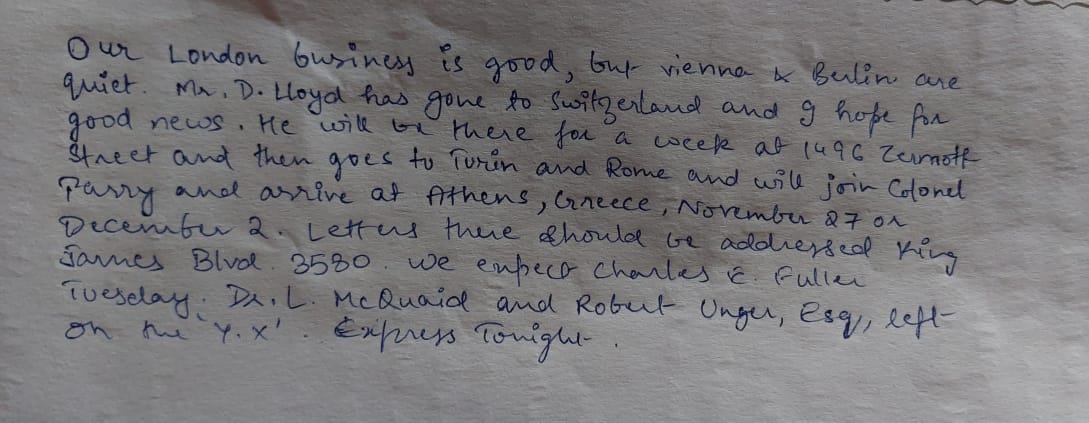 Our London business is good, but vienna & Berlin are
quiet. Mr. D. Lloyd has gone to Switzerland and I hope for
good news. He will be there for a week at 1496 Zermott
Street and then goes to Turin and Rome and will join Colonel
Parry and arrive at Athens, Greece, November 27 or
December 2. Letters there should be addressed King
James Blvd. 3580. We expect Charles E. Fuller
Tuesday. Dr. L. McQuaid and Robert Unger, Esq, left
on the 'Y.X'. Express Tonight.